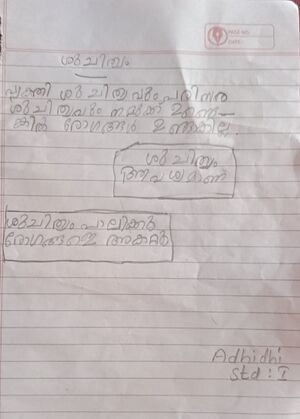 PAGE NO:
DATE:
ശുചിത്വം
വ്യക്തി ശുചിത്വവും പരിസര
ശുചിത്വവും നമുക്ക് ഉണ്ടെ-
ങ്കിൽ രോഗങ്ങൾ ഉണ്ടാകില്ല.
ശുചിത്വം
ആവശ്യമാണ്
ശുചിത്വം പാലിക്കൂ
രോഗങ്ങളെ അകറ്റൂ
Adhidhi
Std : I